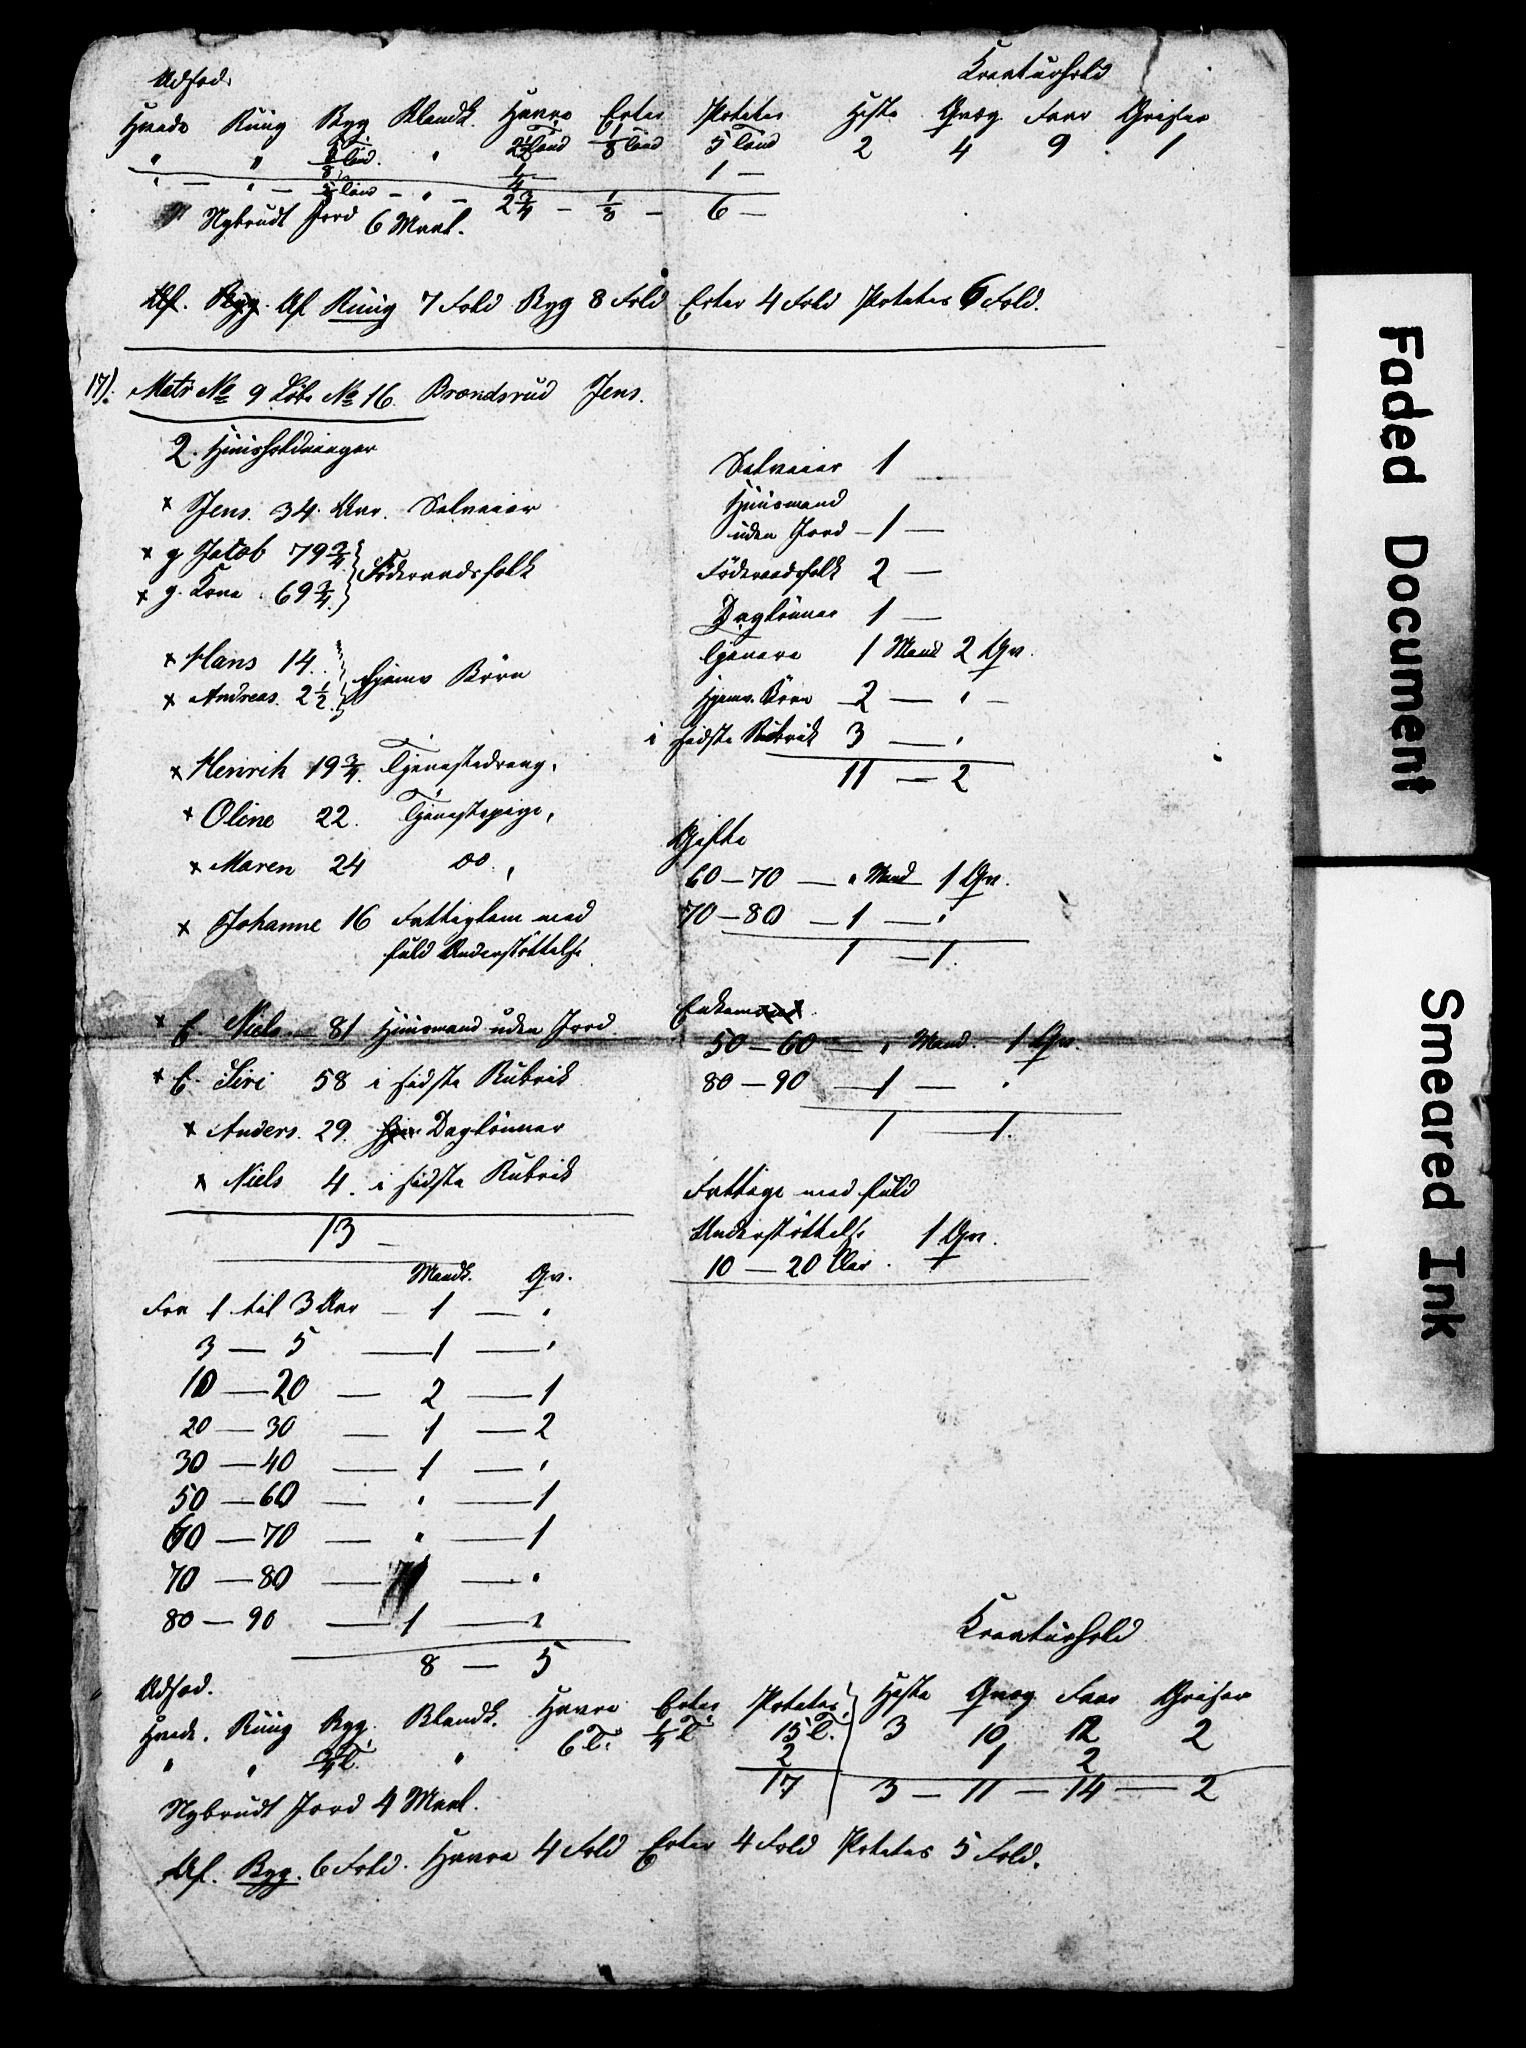 Udsæd. Kreaturhold
Hvede Ruug Byg. Blandk. Havre Erter Potetes Heste Qvæg Faar Griser
" " Tønd. " 2½ Tønd ⅛ Tønd 5 Tønd 2 4 9 1
¼ — 1 —
" — " — Tønd — " — 2¾ — ⅛ — 6 —
Nybrudt Jord 6 Maal.
Af Ruug 7 Fold Byg 8 Fold Erter 4 Fold Potetes 6 Fold.
17). Matr № 9 Løbe № 16. Brændsrud Jens.
2. Huusholdninger
× Jens. 34. Aar. Selveier
× g Jacob 79¾ } Føderaadsfolk
× g. Kone 69¾ }
× Hans 14. } Hjemv Børn
× Andreas. 2½. }
× Henrik 19¾. Tjenestedreng.
× Oline 22. Tjenestepige,
× Maren 24 do. ,
× Johanne 16 Fattiglem med
fuld Understøttelse
× E. Niels — 81 Huusmand uden Jord.
× E. Siri 58 i sidste Rubrik
× Anders. 29. Daglønner
× Niels 4. i sidste Rubrik
13 —
Mandk. Qv.
Fra 1 til 3 Aar — 1 — "
3 — 5 — 1 — "
10 — 20 — 2 — 1
20 — 30 — 1 — 2
30 — 40 — 1 — "
50 — 60 — " — 1
60 — 70 — " — 1
70 — 80 — 1 — "
80 — 90 — 1 — "
8 — 5
Selveier 1 —
Huusmand
uden Jord — 1 —
Føderaadsfolk 2 —
Daglønner 1 —
Tjenere 1 Mand 2 Qv.
Hjemv. Børn 2 — " —
i sidste Rubrik 3 — "
11 — 2
Gifte
60 — 70 — " Mand 1 Qv.
70 — 80 — 1 — "
1 — 1.
Enkem
50 — 60 — " Mand. 1 Qv.
80 — 90 — 1 — "
1 — 1.
Fattige med fuld
Understøttelse 1 Qv.
10 — 20 Aar.
Kreaturhold
Udsæd.
Hvede. Ruug Byg. Blandk. Havre Erter Potetes. Heste Qvæg Faar Griser
" " ¾ T. " 6 T. ¼ T 15 T. 3 10 12 2
2 1 2
17 3 — 11 — 14 — 2
Nybrudt Jord 4 Maal.
Af. Byg. 6 Fold. Havre 4 Fold Erter 4 Fold Potetes 5 Fold.
Faded Document
Smeared Ink